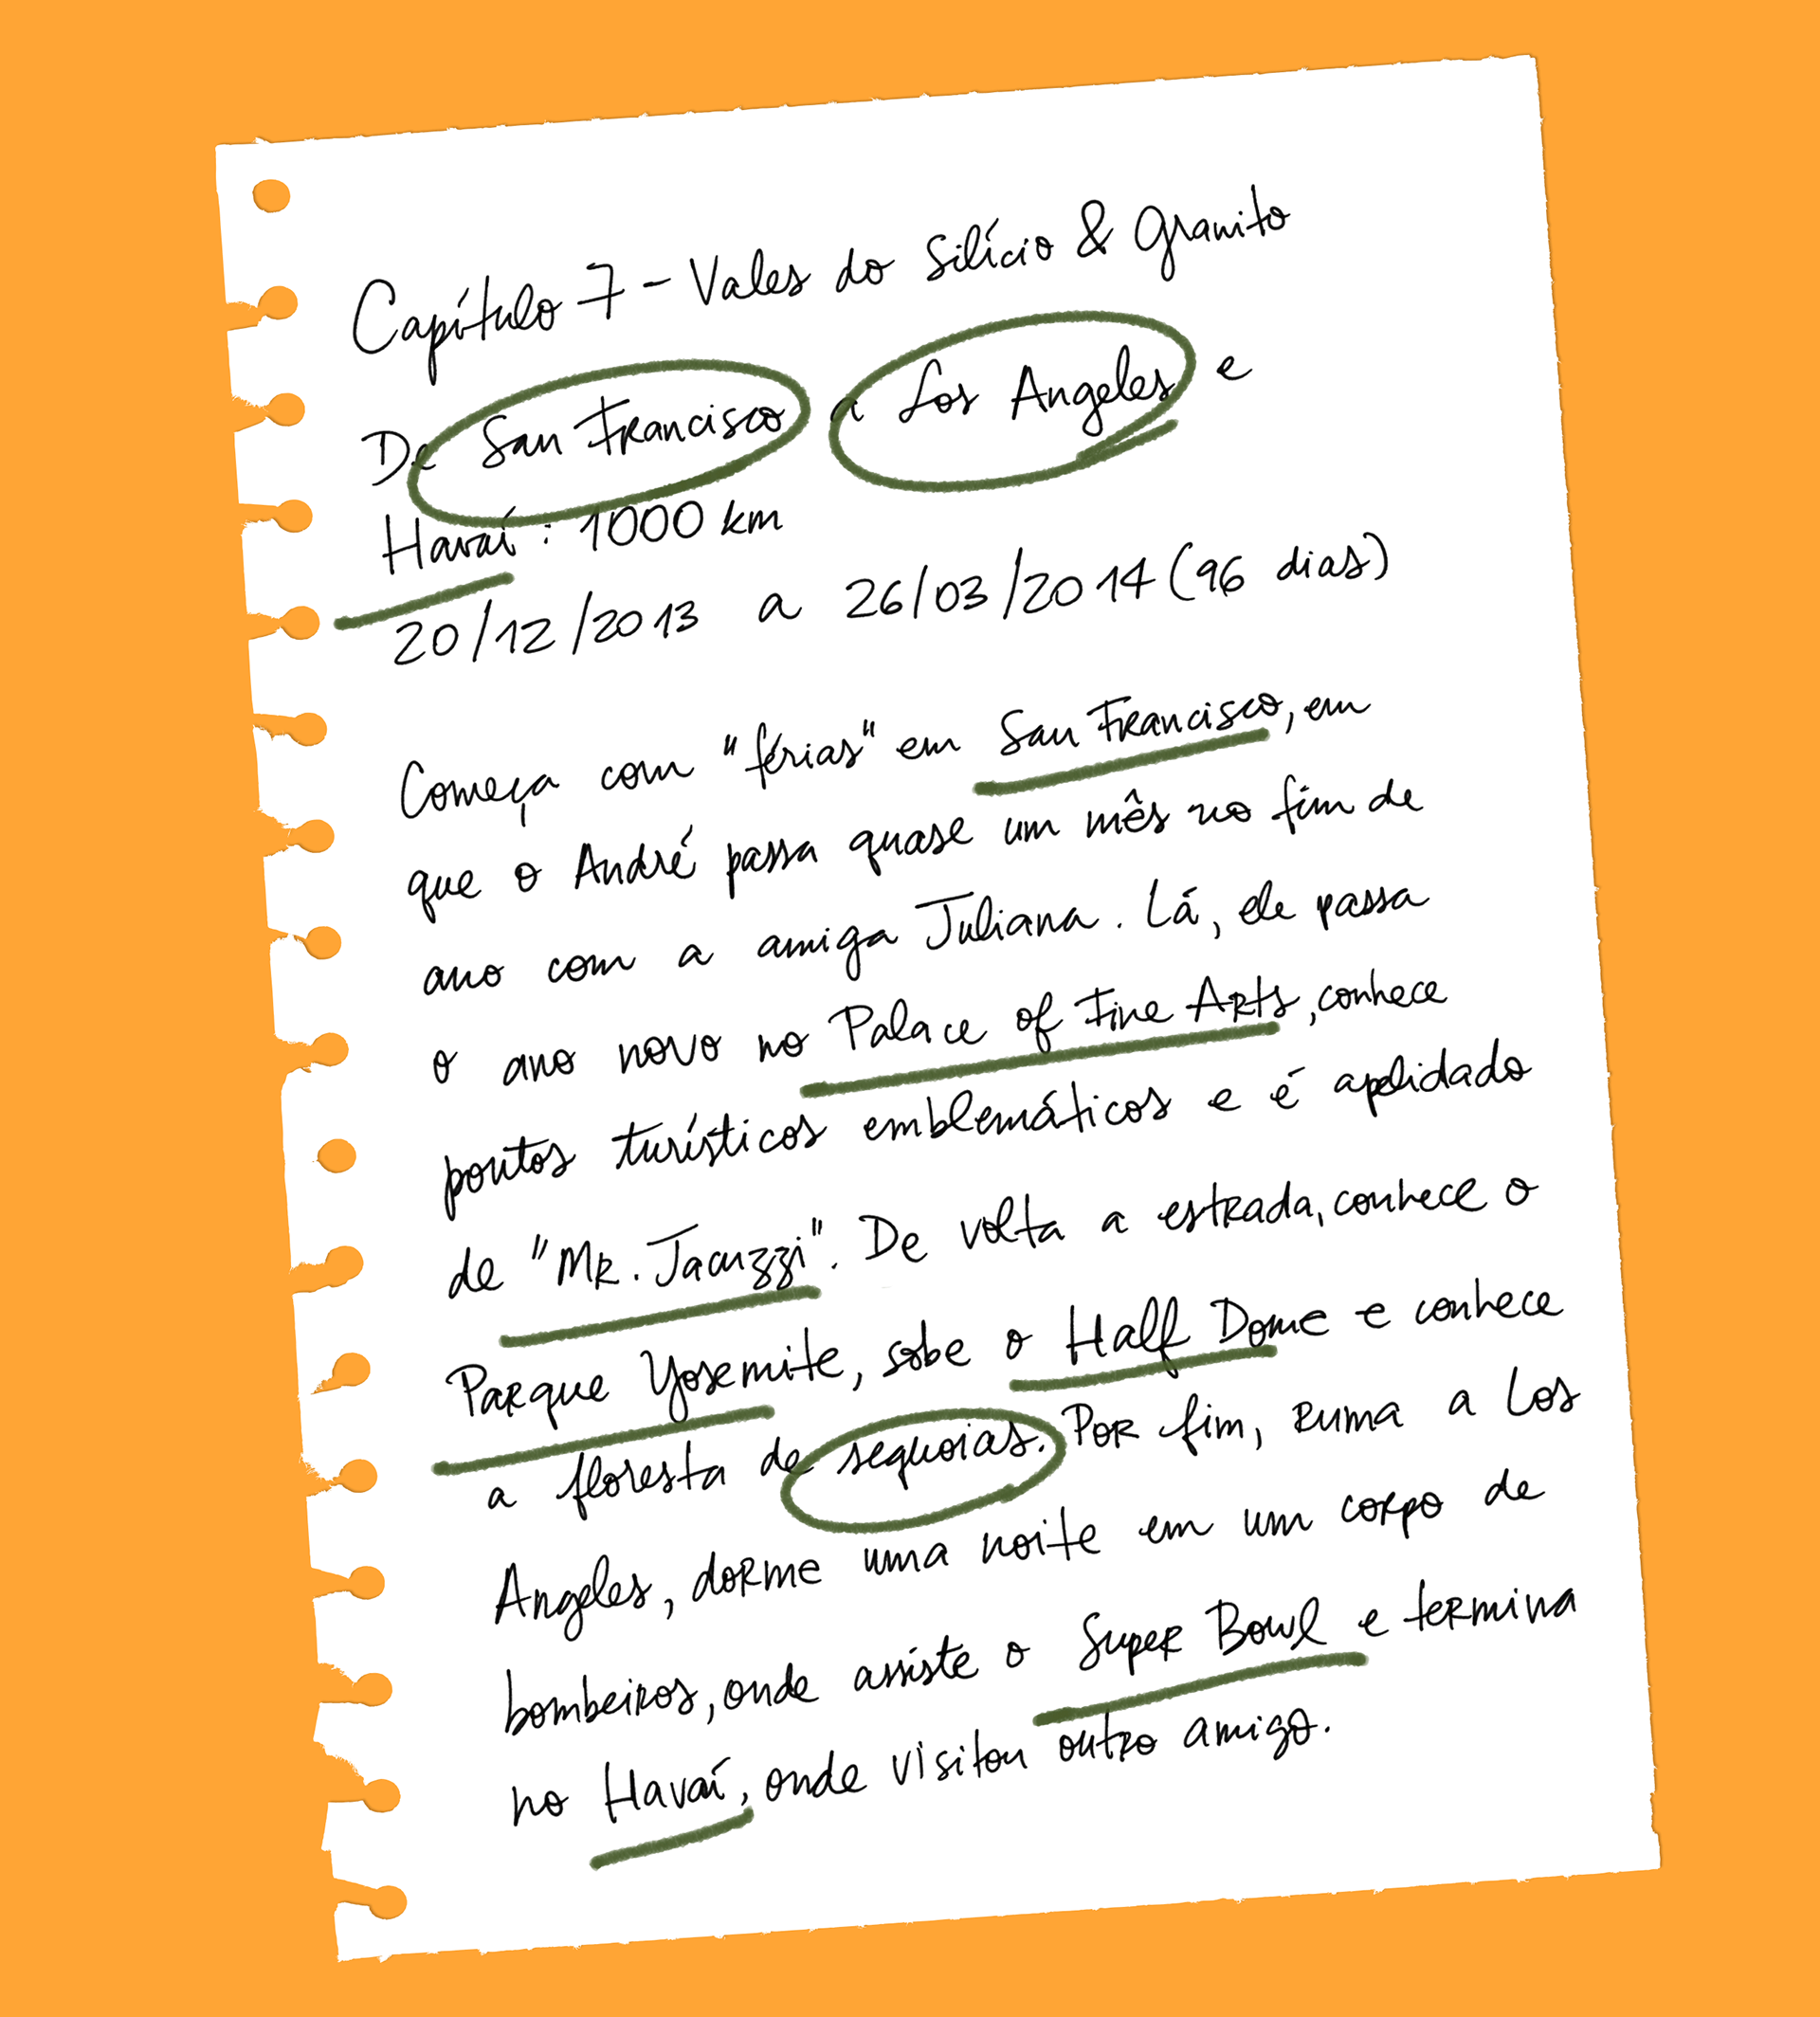 Capítulo 7 - Vales do Silício & Granito
De San Francisco a Los Angeles e
Havaí: 1000 km
20/12/2013 a 26/03/2014 (96 dias)
Começa com "férias" em San Francisco, em
que o André passa quase um mês no fim de
ano com a amiga Juliana. Lá, ele passa
o ano novo no Palace of Fine Arts, conhece
pontos turísticos emblemáticos e é apelidado
de "Mr. Jacuzzi". De volta a estrada, conhece o
Parque Yosemite, sobe o Half Dome e conhece
a floresta de sequoias. Por fim, ruma a Los
Angeles, dorme uma noite em um corpo de
bombeiros, onde assiste o Super Bowl e termina
no Havaí, onde visitou outro amigo.